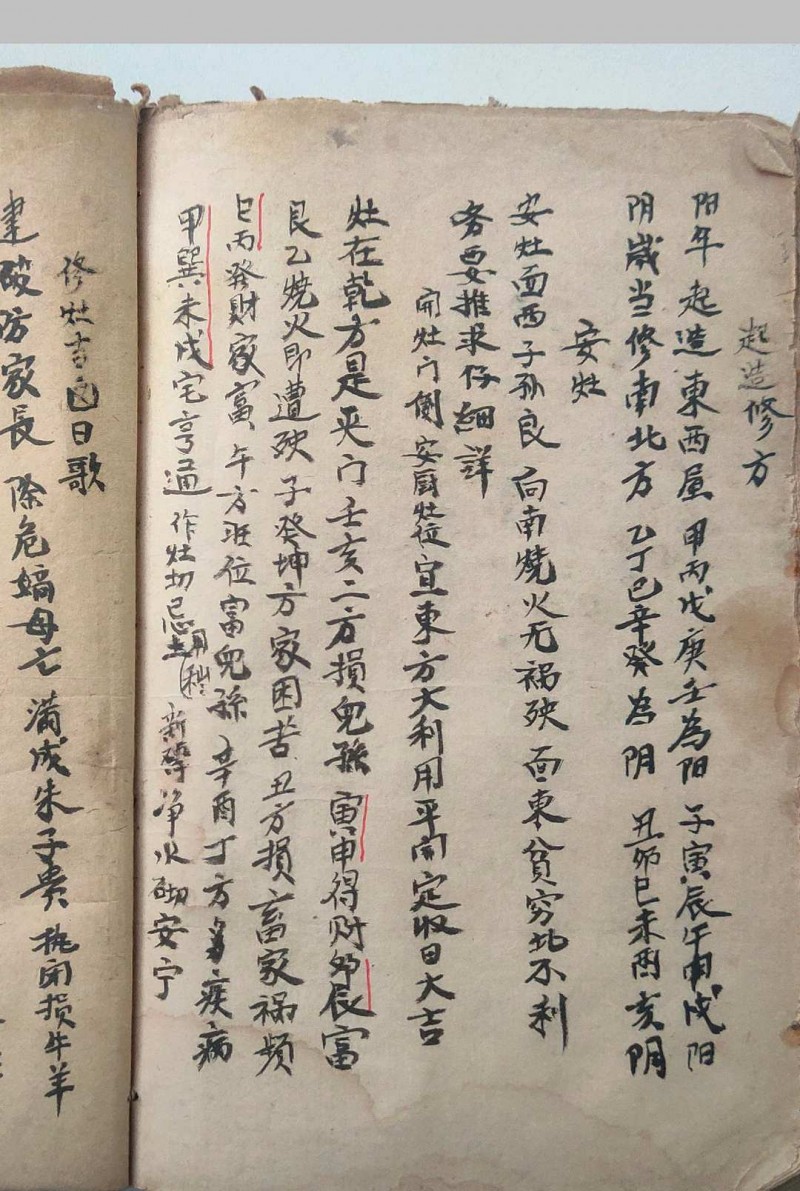 起造修方
阳年起造東西屋 甲丙戊庚壬為阳 子寅辰午申戍阳
阴歲当修南北方 乙丁巳辛癸為阴 丑卯巳未酉亥阴
安灶
安灶面西子孙良 向南燒火无禍殃 面東貧穷北不利
务要推求仔細詳
開灶门倒安厨灶位宜東方大利用平開定收日大吉
灶在乾方是灭门 壬亥二方損兒孫 寅申得财卯辰富
艮乙燒火即遭殃 子癸坤方家困苦 丑方損畜家禍頻
巳丙發財家富 午方旺位富兒孫 辛酉丁方多疾病
甲巽未戍宅亨通 作灶切忌用 新磚净水砌安宁
修灶吉凶日歌
建破妨家長 除危 母亡 滿成朱子贵 执闭損牛羊